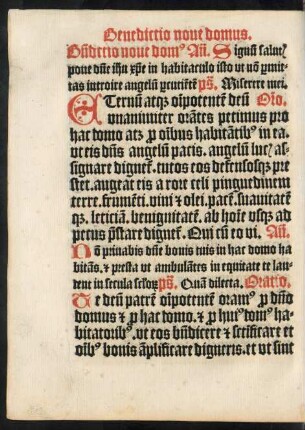 Benedictio noue domus.
Bñdictio noue dom⁹ Añ. Signuꝫ salut⁊
pone dñe ihu xp̄e in habitaculo isto ut nō ꝑmit-
tas introire angelū ꝑcutiētē ps̄. Miserere mei.
Eternū atqꝫ oi̅potentē deū Oīo.
vnanimiter orātes petimus pro
hac domo atꝫ ꝓ oībus habitātib⁹ in ea.
ut eis dn̄s angelū pacis. angelū luc⁊ as-
signare dignet᷑. tutos eos defensosqꝫ pre
stet. augeat eis a rore celi pinguedinem
terre. frumēti. vini ⁊ olei. pacē. suauitatē
qꝫ. leticiā. benignitatē. ab hoīe vsqꝫ ad
petus p̄stare dignet᷑. Qui cū eo vi. Añ.
Nō priuabis dn̄e bonis tuis in hac domo ha
bitātes. ⁊ presta vt ambulātes in equitate te lau-
dent in secula sc̄loꝝ ps̄. Quā dilecta. Oratio.
Te deū patrē oi̅potentē oram⁹ ꝓ
domus ⁊ ꝓ hac domo. ⁊ ꝓ hui⁹ dom⁹ ha-
bitatorib⁹. vt eos bn̄dicere ⁊ sc̄tificare et
oīb⁹ bonis āplificare digneris. et vt sint